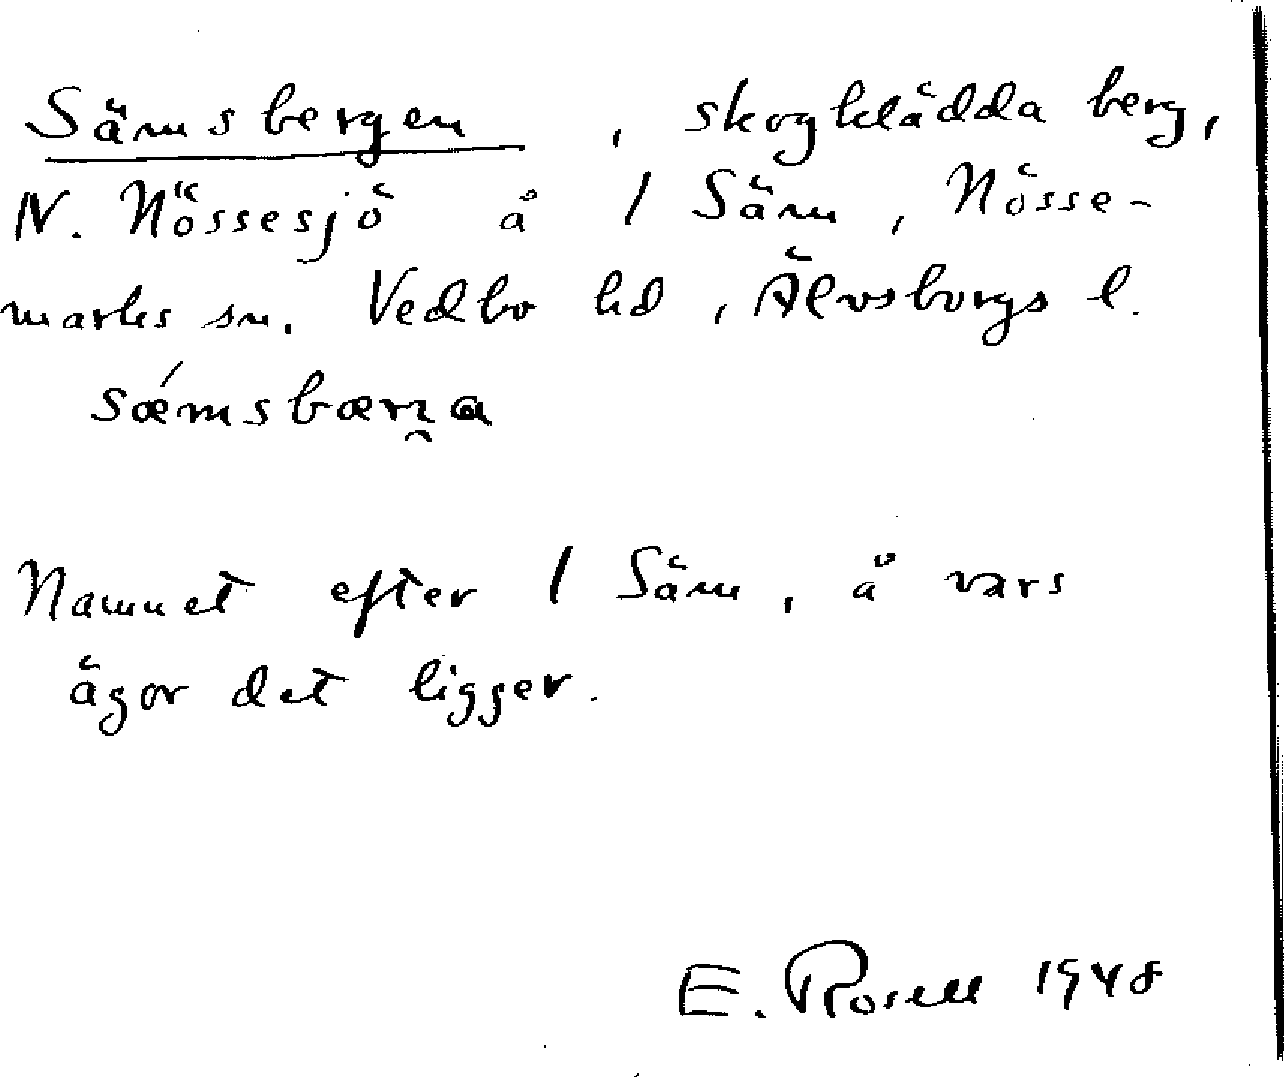 Sämsbergen , skogklädda berg,
N. Nössesjö å / Säm, Nösse-
marks sn. Vedbo hd, Älvsborgs l.
sǽmsbærn̯a
Namnet efter / Säm, å vars
ägor det ligger.
E. Rosell 1948